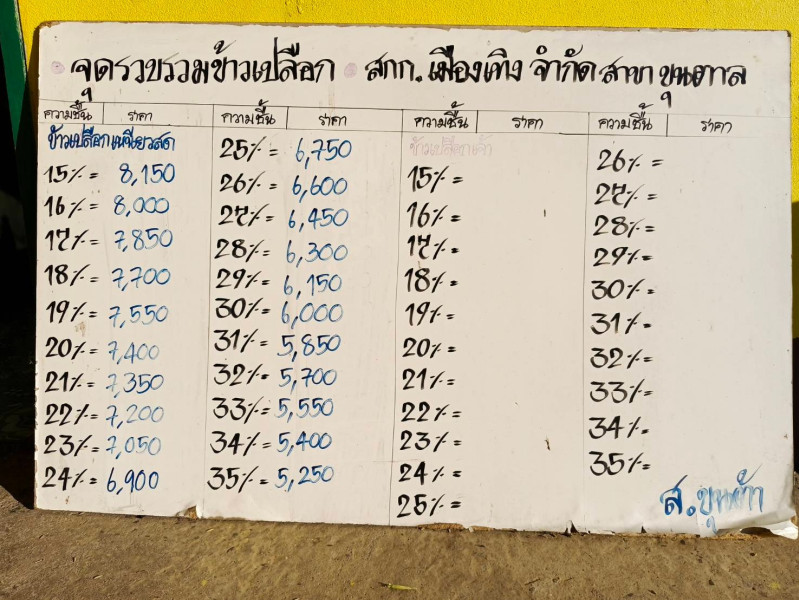 จุดรวบรวมข้าวเปลือก สกก. เมืองเทิง จำกัด สาขา ขุนตาล
ความชื้น ราคา
ข้าวเปลือกเหนียวสด
15% = 8,150
16% = 8,000
17% = 7,850
18% = 7,700
19% = 7,550
20% = 7,400
21% = 7,350
22% = 7,200
23% = 7,050
24% = 6,900
ความชื้น ราคา
25% = 6,750
26% = 6,600
27% = 6,450
28% = 6,300
29% = 6,150
30% = 6,000
31% = 5,850
32% = 5,700
33% = 5,550
34% = 5,400
35% = 5,250
ความชื้น ราคา
ข้าวเปลือกเจ้า
15% =
16% =
17% =
18% =
19% =
20% =
21% =
22% =
23% =
24% =
25% =
ความชื้น ราคา
26% =
27% =
28% =
29% =
30% =
31% =
32% =
33% =
34% =
35% =